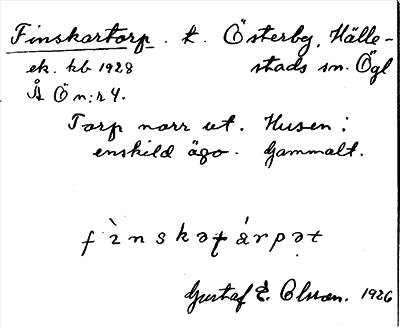 Finskartorp. t. Österby, Hälle-
ek. kb 1928 stads sn. Ögl
Å Ö n:r 4.
Torp norr ut. Husen i
enskild ägo. Gammalt.
fìnskətárpət
Gustaf E. Olsson. 1926